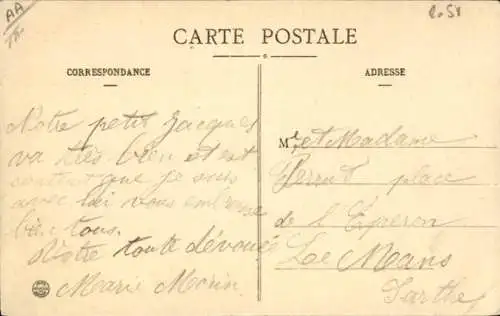 AA
CARTE POSTALE
CORRESPONDANCE
Notre petit Jacques
va très bien et est
content que je suis
avec lui vous embrasse
bien tous.
Votre toute dévouée
Marie Morin
ADRESSE
Mr et Madame
place
de l'Eperon
Le Mans
Sarthe